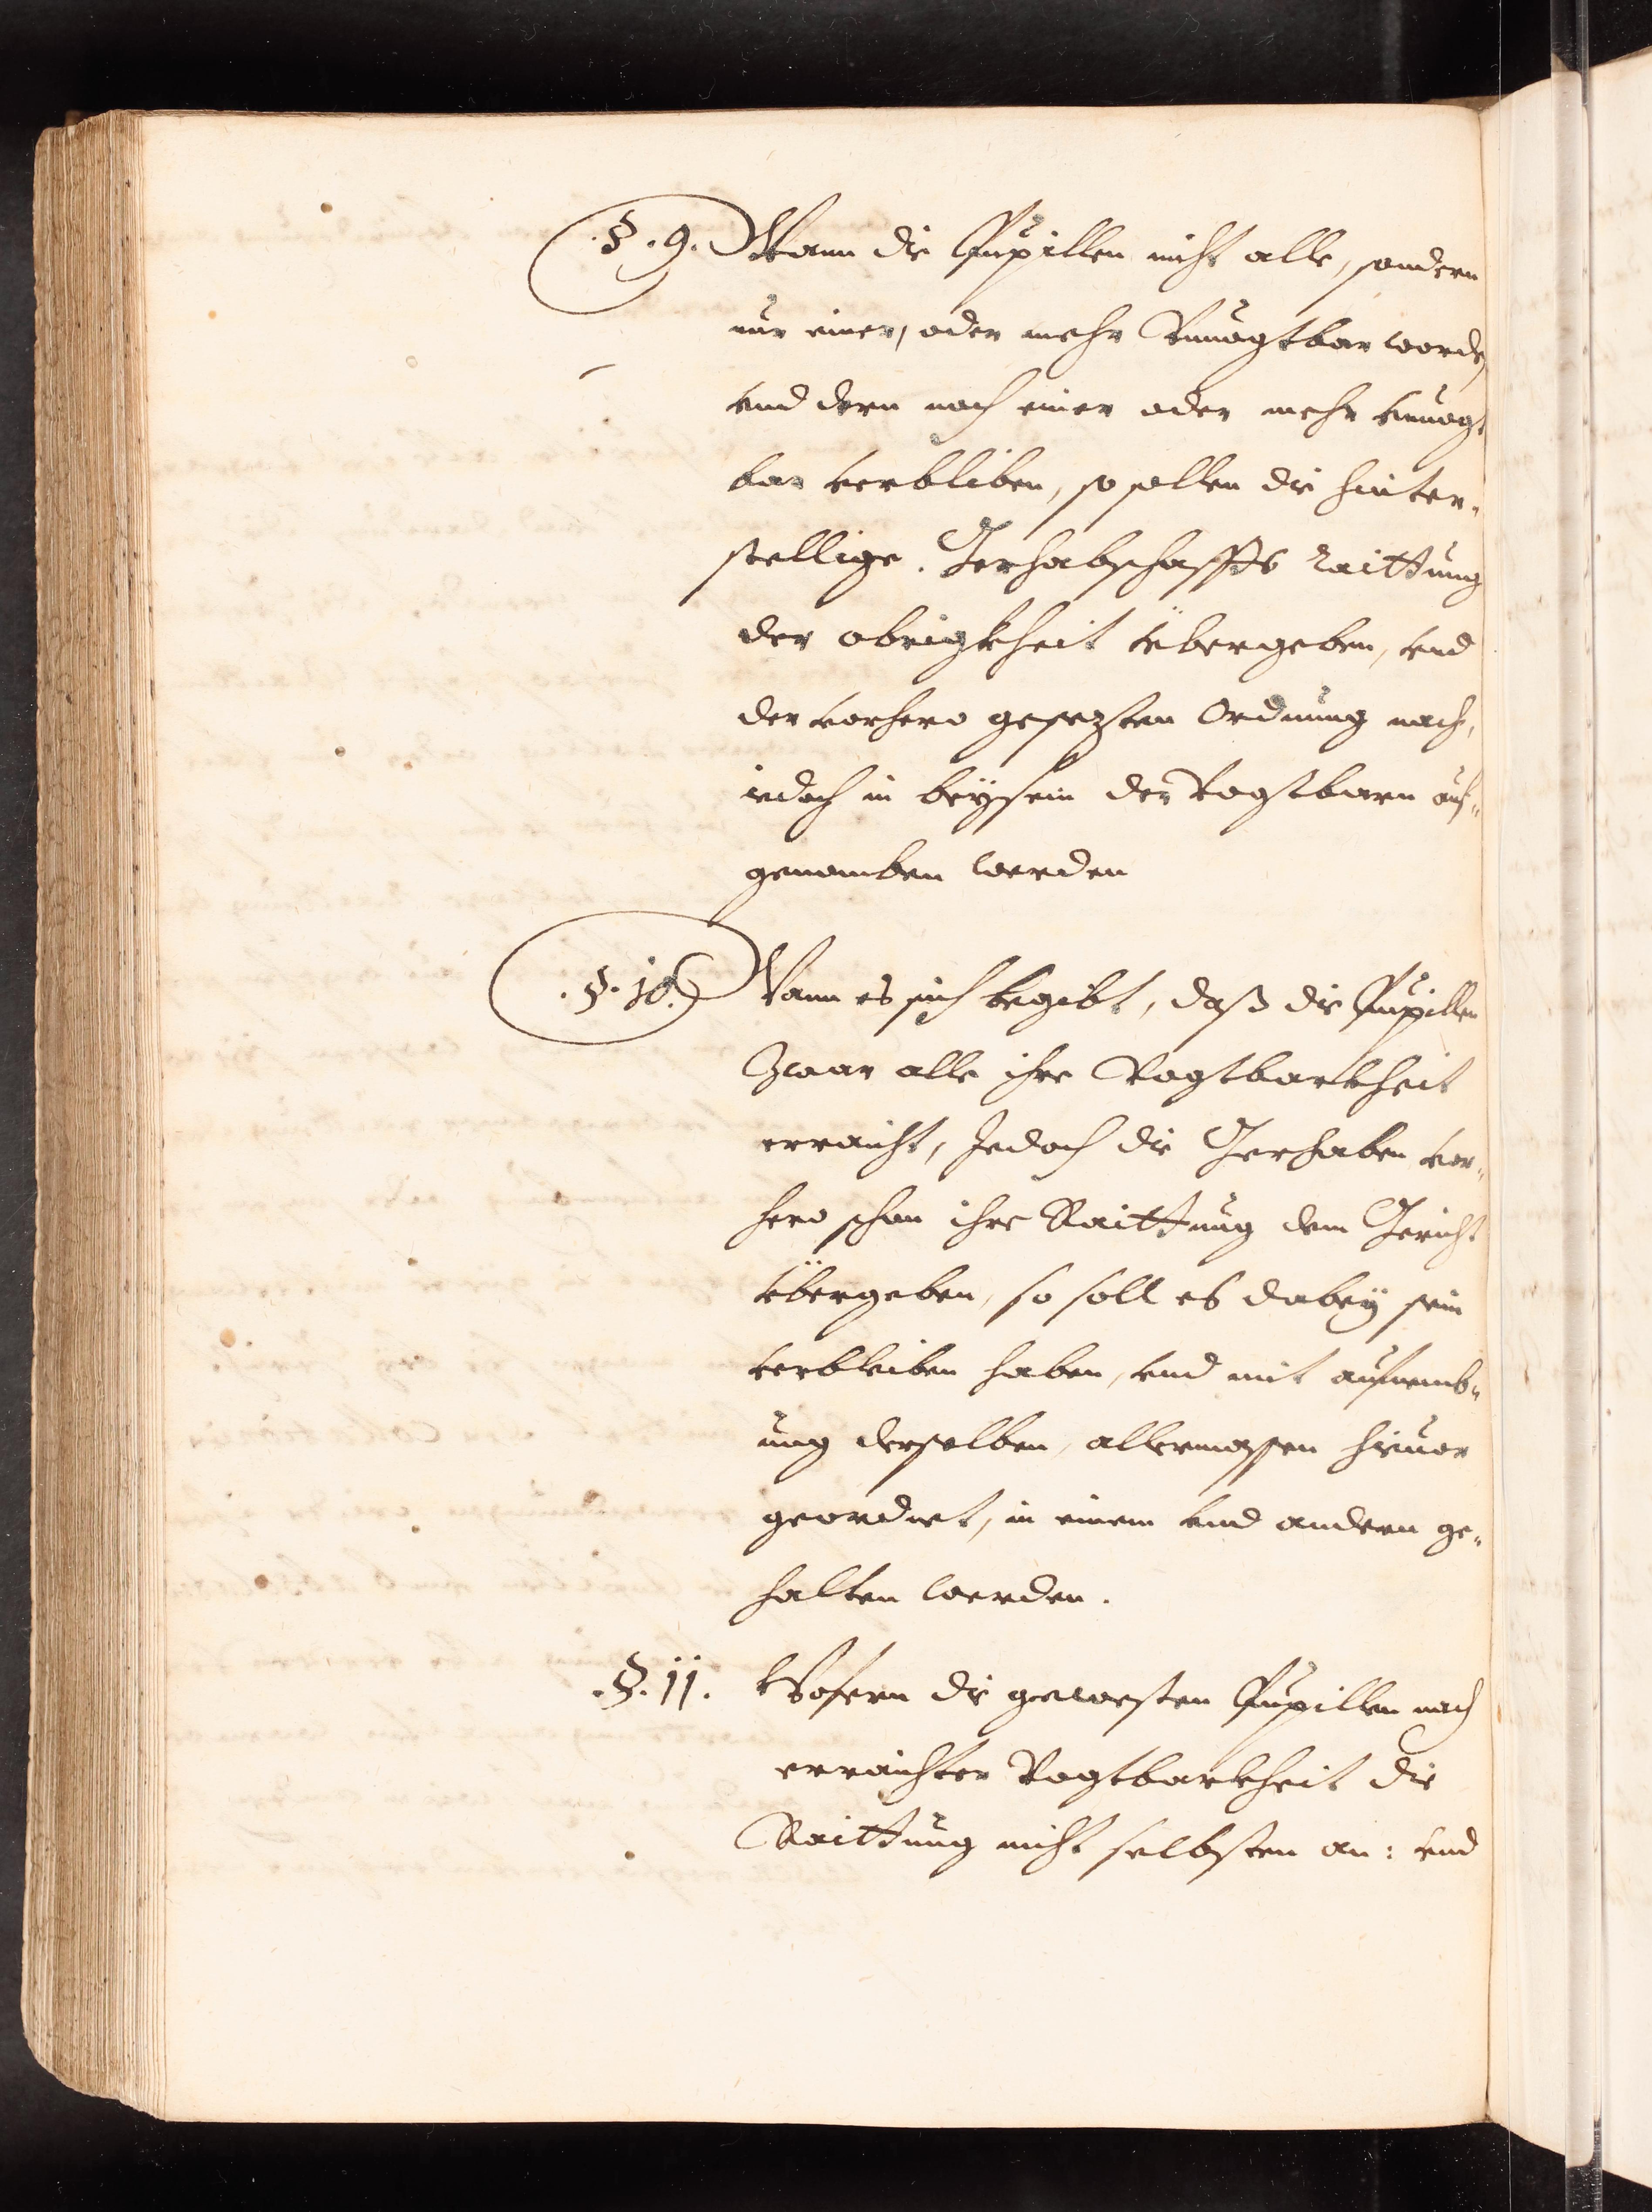 .§.9. Wann die Pupillen nicht alle, sondern
nur einer, oder mehr Vnuogtbar worden,
vnd deren noch einer oder mehr vnuogt
bar verbliben, so sollen die hinter-
stellige Gerhabschaffts raittung
der obrigkheit übergeben, vnd
der vorhero gesezten Ordnung nach,
iedoch in beysein der Vogtbarn auf-
genomben werden
.§.10. Wann es sich begibt, daß die Pupillen
Zwar alle ihre Vogtbarkheit
erraicht, Jedoch die Gerhaben vor-
hero schon ihre Raittung dem Gericht
übergeben, so soll es dabey sein
verbleiben haben, vnd mit aufnemb-
ung derselben, allermassen hieuor
geordnet, in einem vnd andern ge-
halten werden.
.§.11. Wofern die gewesten Pupillen nach
erraichter Vogtbarkheit die
Raittung nicht selbsten an: vnd